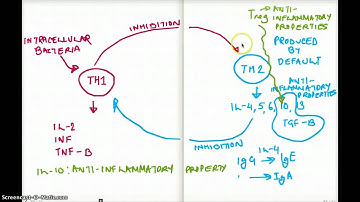 INHIBITION
INTRACELLULAR
BACTERIA
TH1
IL-2
INF
TNF-B
IL-10: ANTI-INFLAMMATORY PROPERTY
Treg → ANTI-
INFLAMMATORY
PROPERTIES
PRODUCED
BY
DEFAULT
TH2
ANTI-
INFLAMMATORY
PROPERTIES
IL-4, 5, 6, 10, 13
TGF-B
INHIBITION
IL-4
IgG → IgE
→ IgA
Screencast-O-Matic.com